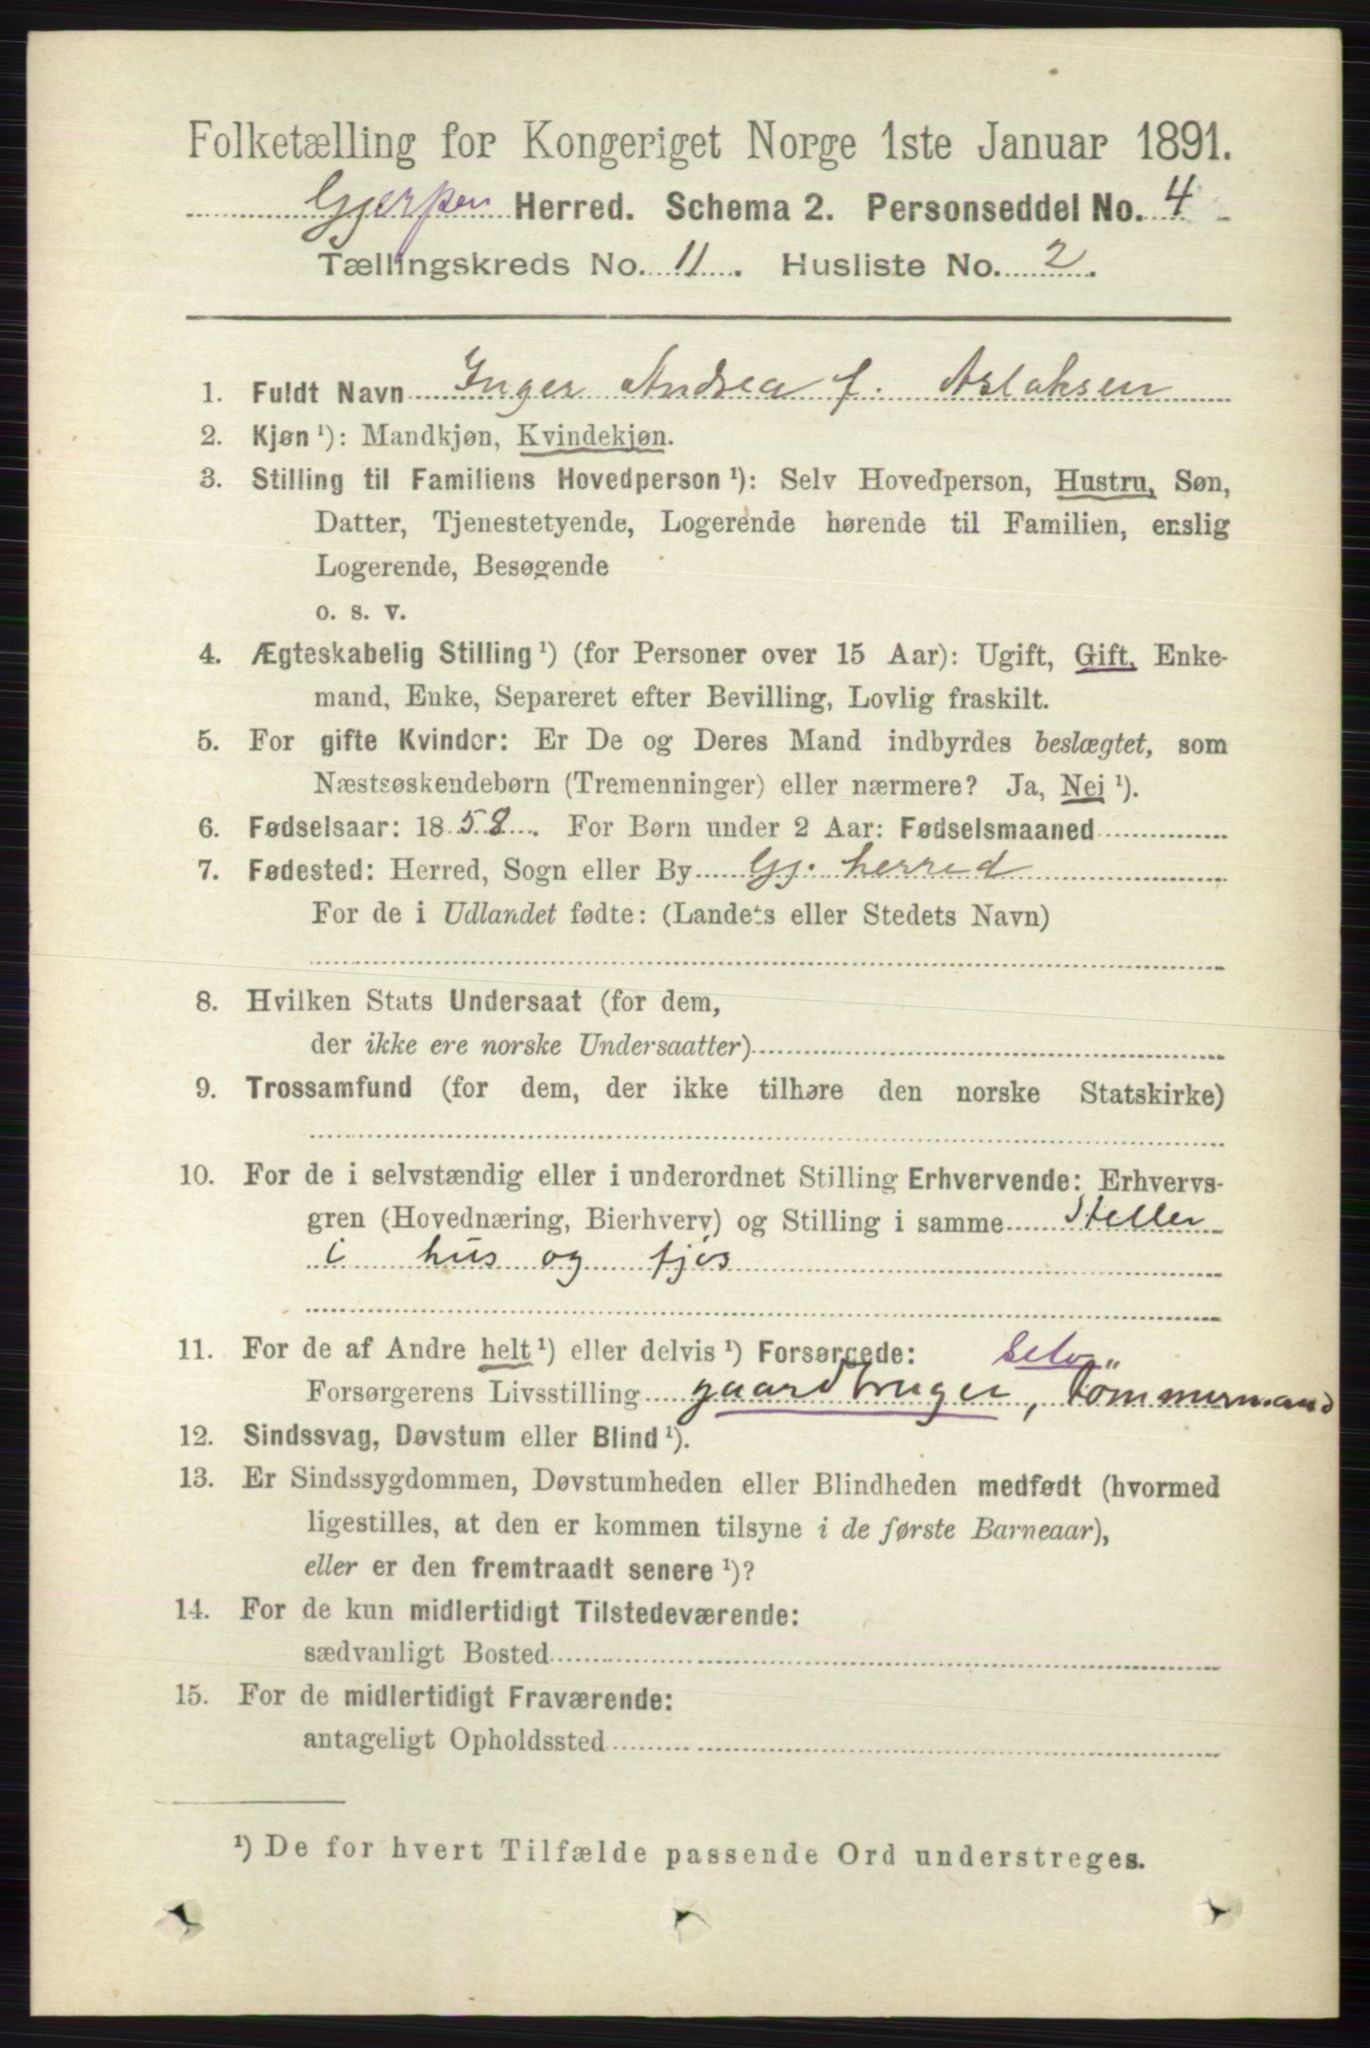 Folketælling for Kongeriget Norge 1ste Januar 1891.
Gjerpen Herred. Schema 2. Personseddel No. 4
Tællingskreds No. 11. Husliste No. 2.
1. Fuldt Navn Inger Andrea f. Aslaksen
2. Kjøn ¹): Mandkjøn, Kvindekjøn.
3. Stilling til Familiens Hovedperson ¹): Selv Hovedperson, Hustru, Søn,
Datter, Tjenestetyende, Logerende hørende til Familien, enslig
Logerende, Besøgende
o. s. v.
4. Ægteskabelig Stilling ¹) (for Personer over 15 Aar): Ugift, Gift, Enke-
mand, Enke, Separeret efter Bevilling, Lovlig fraskilt.
5. For gifte Kvinder: Er De og Deres Mand indbyrdes beslægtet, som
Næstsøskendebørn (Tremenninger) eller nærmere? Ja, Nej ¹).
6. Fødselsaar: 1858. For Børn under 2 Aar: Fødselsmaaned
7. Fødested: Herred, Sogn eller By Gj. herred
For de i Udlandet fødte: (Landets eller Stedets Navn)
8. Hvilken Stats Undersaat (for dem,
der ikke ere norske Undersaatter)
9. Trossamfund (for dem, der ikke tilhøre den norske Statskirke)
10. For de i selvstændig eller i underordnet Stilling Erhvervende: Erhvervs-
gren (Hovednæring, Bierhverv) og Stilling i samme Steller
i hus og fjøs
11. For de af Andre helt ¹) eller delvis ¹) Forsørgede: selv
Forsørgerens Livsstilling gaardbruger, Tömmermand
12. Sindssvag, Døvstum eller Blind ¹).
13. Er Sindssygdommen, Døvstumheden eller Blindheden medfødt (hvormed
ligestilles, at den er kommen tilsyne i de første Barneaar),
eller er den fremtraadt senere ¹)?
14. For de kun midlertidigt Tilstedeværende:
sædvanligt Bosted
15. For de midlertidigt Fraværende:
antageligt Opholdssted
¹) De for hvert Tilfælde passende Ord understreges.